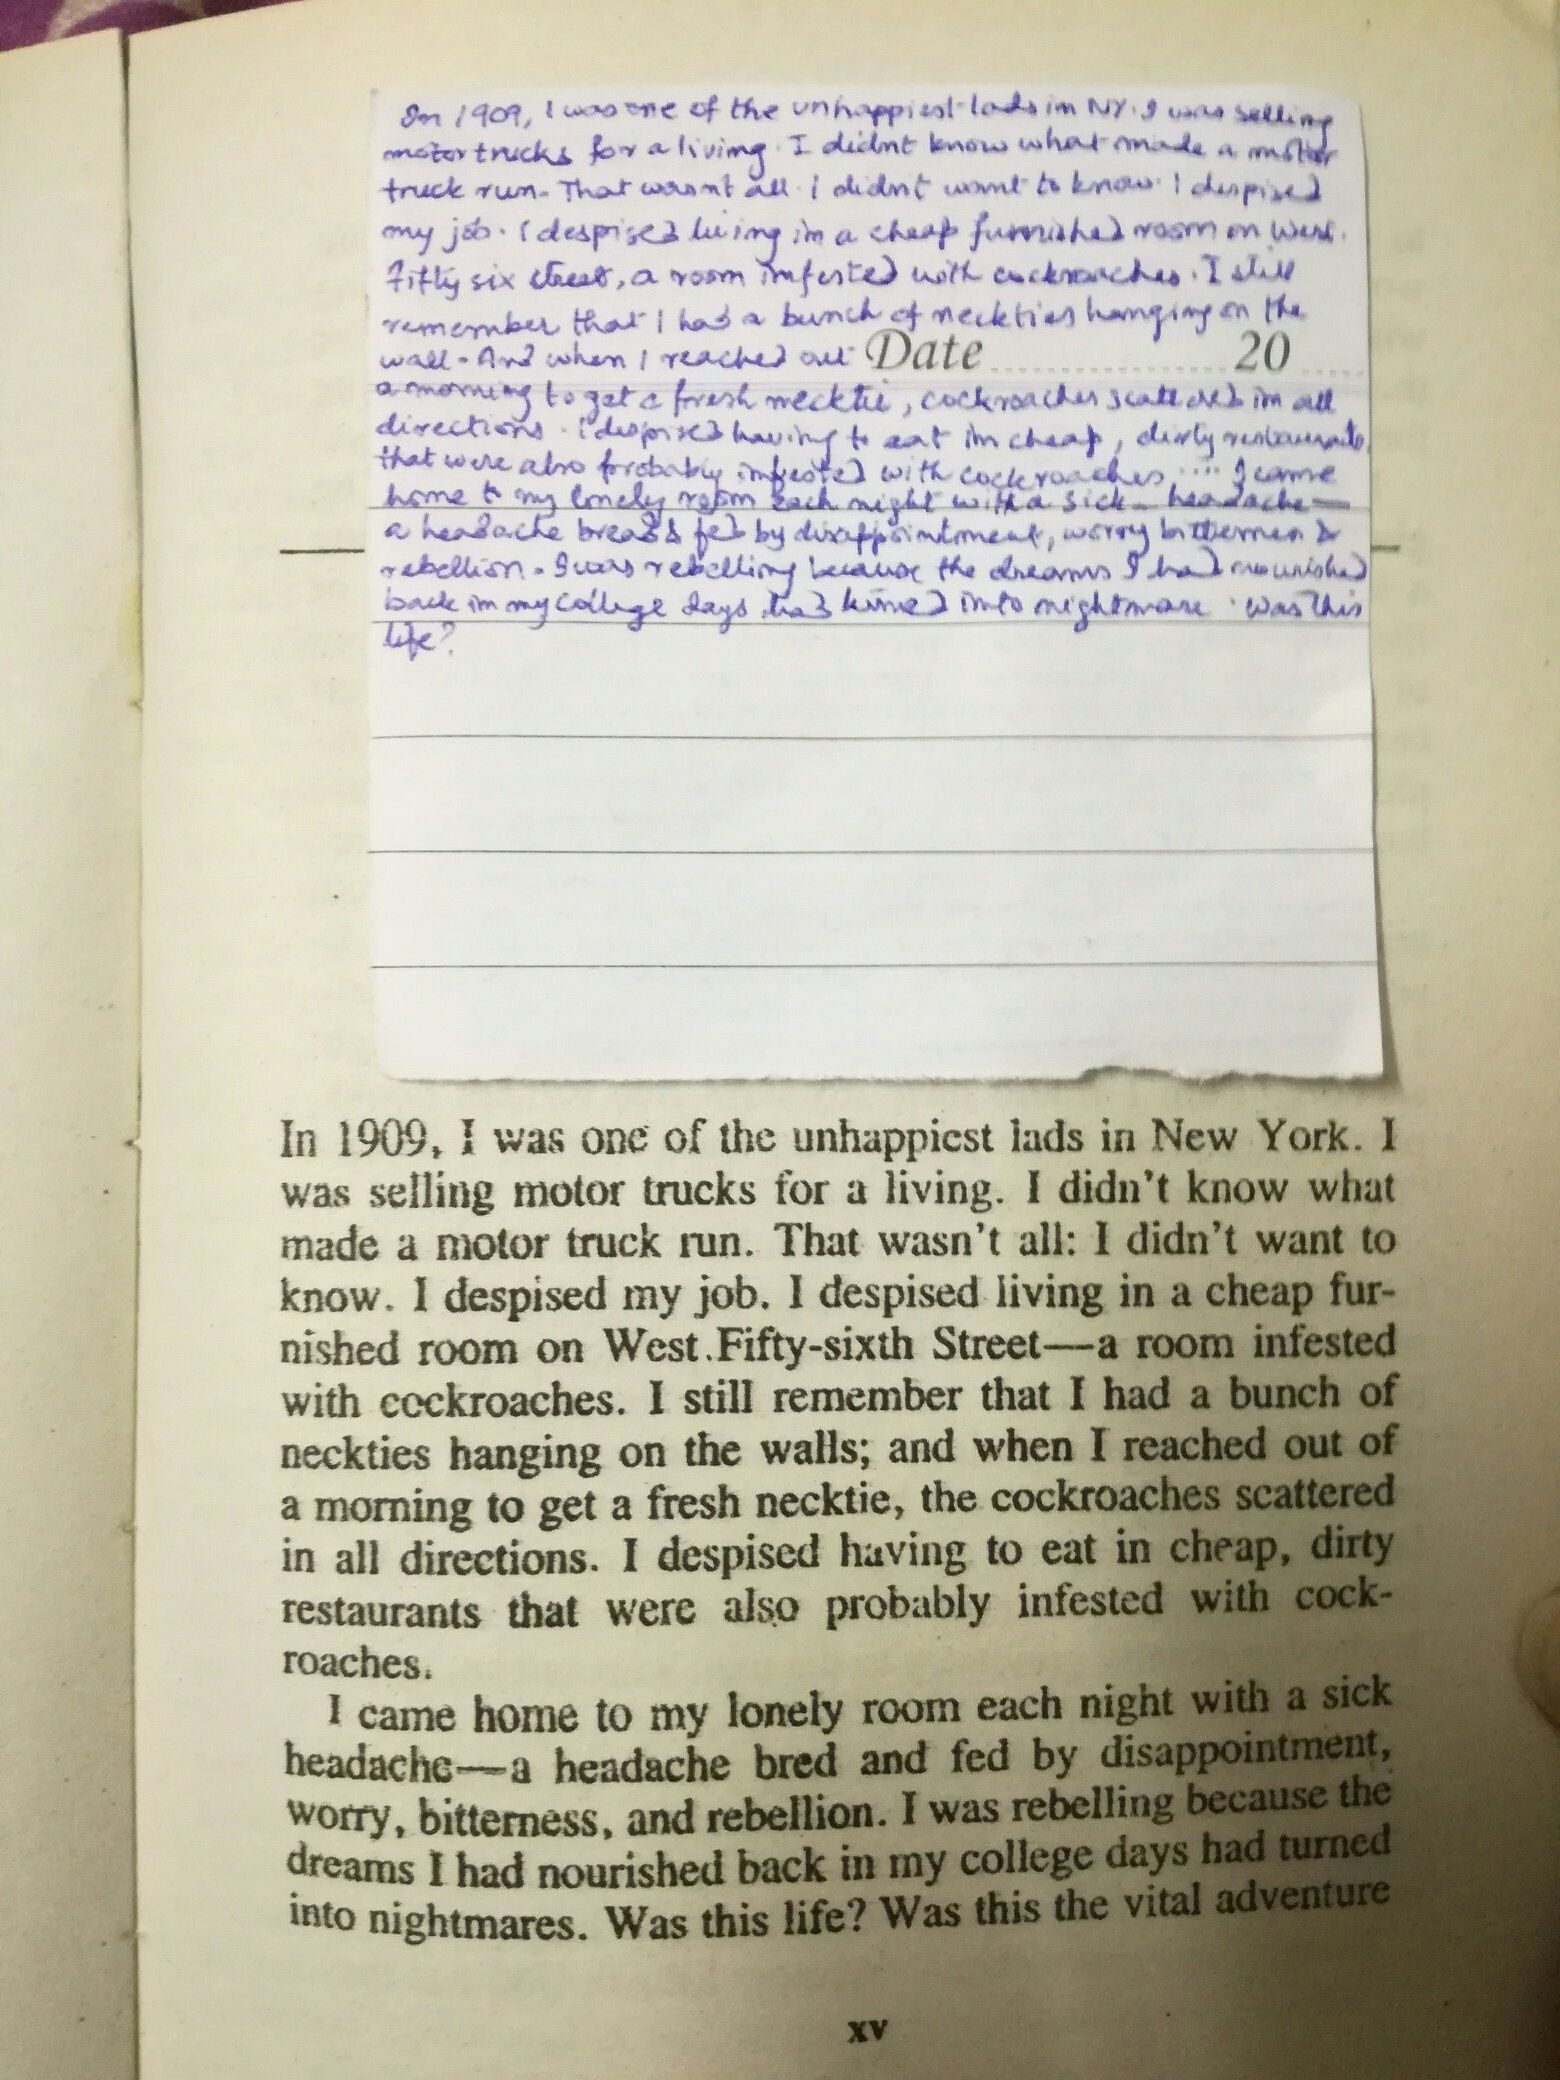 In 1909, I was one of the unhappiest lads in NY. I was selling
motor trucks for a living. I didnt know what made a motor
truck run. That wasnt all. I didn't want to know. I despised
my job. I despised living in a cheap furnished room on West.
Fifty six street, a room infested with cockroaches. I still
remember that I had a bunch of neckties hanging on the
wall. And when I reached out Date 20
a morning to get a fresh necktie, cockroaches scattered in all
directions. I despised having to eat in cheap, dirty restaurants
that were also probably infested with cockroaches .... I came
home to my lonely room each night with a sick - headache —
a headache bread & fed by disappointment, worry bitterness &
rebellion. I was rebelling because the dreams I had nourished
back in my college days had turned into nightmare. was this
life?
In 1909, I was one of the unhappiest lads in New York. I
was selling motor trucks for a living. I didn't know what
made a motor truck run. That wasn't all: I didn't want to
know. I despised my job. I despised living in a cheap fur-
nished room on West Fifty-sixth Street—a room infested
with cockroaches. I still remember that I had a bunch of
neckties hanging on the walls; and when I reached out of
a morning to get a fresh necktie, the cockroaches scattered
in all directions. I despised having to eat in cheap, dirty
restaurants that were also probably infested with cock-
roaches.
I came home to my lonely room each night with a sick
headache—a headache bred and fed by disappointment,
worry, bitterness, and rebellion. I was rebelling because the
dreams I had nourished back in my college days had turned
into nightmares. Was this life? Was this the vital adventure
xv